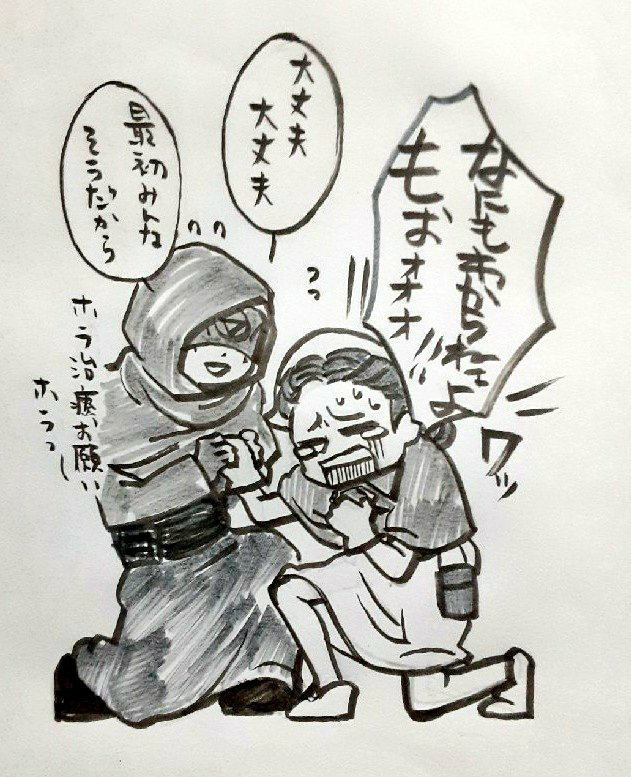 なにもわからねェよ
もぉォォォ
ワッ
大丈夫
大丈夫
っっ
最初みんな
そうだから
ホラ治癒お願い
ホラっ